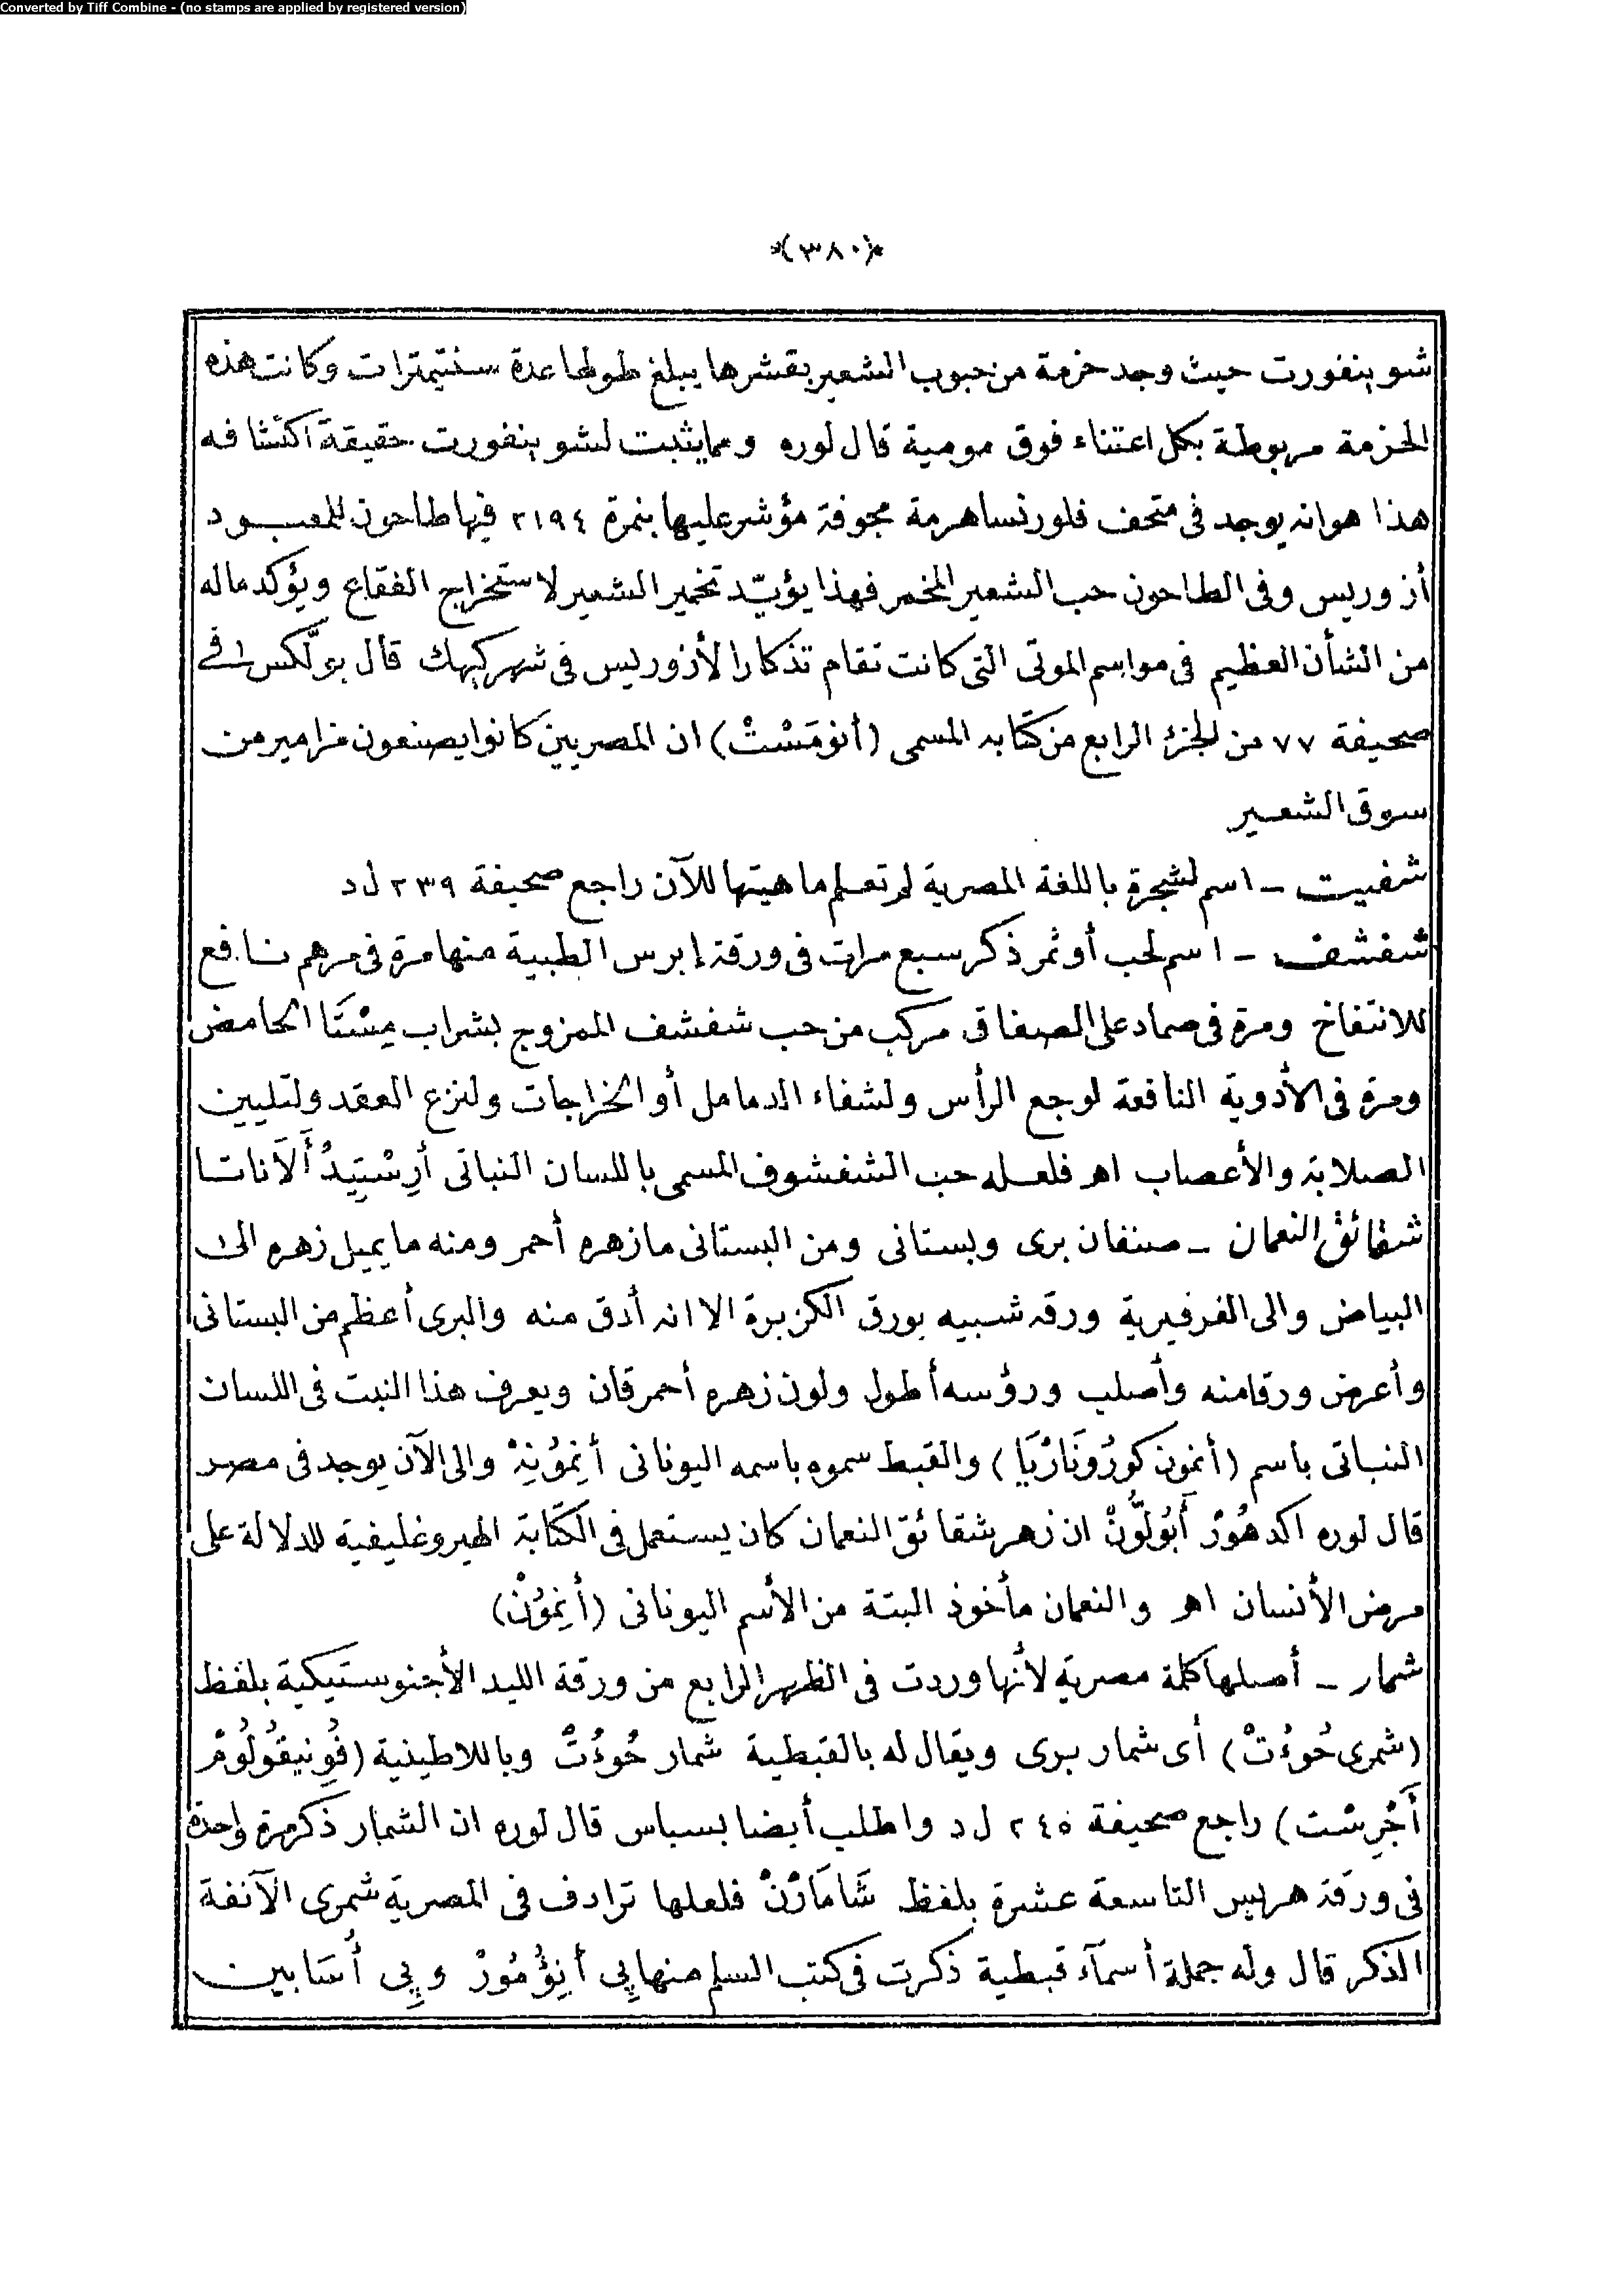 Converted by Tiff Combine - (no stamps are applied by registered version)
*(٣٨٠)*
شوينفورت حيث وجد حزمة من حبوب الشعير بقشرها يبلغ طولها عدة سنتيمترات وكانت هذه
الحزمة مربوطة بكل اعتناء فوق مومية قال لوره ومما يثبت لشوينفورت حقيقة اكتشافه
هذا هو انه يوجد فى متحف فلورنسا هرمة مجوفة مؤشر عليها بنمرة ٢١٩٤ فيها طاحون للمعبود
أزوريس وفى الطاحون حب الشعير المخمر فهذا يؤيّد تخمير الشعير لاستخراج الفقاع ويؤكد ماله
من الشأن العظيم فى مواسم الموتى التى كانت تقام تذكارا لأزوريس فى شهر كيهك قال بولّكس فى
صحيفة ٧٧ من الجزء الرابع من كتابه المسمى (أنومَسْتْ) ان المصريين كانوا يصنعون مزامير من
سوق الشعير
شفيت - اسم لشجرة باللغة المصرية لم تعلم ماهيتها للآن راجع صحيفة ٢٣٩ ل د
شفشف - اسم لحب أو ثمر ذكر سبع مرات فى ورقة إبرس الطبية منها مرة فى مرهم نافع
للانتفاخ ومرة فى ضماد على الصفاق مركب من حب شفشف الممزوج بشراب مِسْتَا الحامض
ومرة فى الأدوية النافعة لوجع الرأس ولشفاء الدمامل أو الخراجات ولنزع العقد ولتليين
الصلابة والأعصاب اهـ فلعله حب الشفشوف المسمى باللسان النباتى أرِسْتِيدُ ألَاناتا
شقائق النعمان - صنفان برى وبستانى ومن البستانى ما زهره أحمر ومنه ما يميل زهره الى
البياض والى الفرفيرية ورقه شبيه بورق الكزبرة الا انه أدق منه والبرى أعظم من البستانى
وأعرض ورقا منه وأصلب ورؤسه أطول ولون زهره أحمر قان ويعرف هذا النبت فى اللسان
النباتى باسم (أنمون كورُونَارْيَا) والقبط سموه باسمه اليونانى أنِمُونِهْ والى الآن يوجد فى مصر
قال لوره اكد هُورْ أَبُولُّونْ ان زهر شقائق النعمان كان يستعمل فى الكتابة الهيروغليفية للدلالة على
مرض الأنسان اهـ والنعمان مأخوذ البتة من الأسم اليونانى (أنِمُونْ)
شمار - أصلها كلمة مصرية لأنها وردت فى الظهر الرابع من ورقة الليد الأجنوستيكية بلفظ
(شمرى حُوءُتْ) أى شمار برى ويقال له بالقبطية شمار حُوءُتْ وباللاطينية (فُونيقُولُومْ
أَجْرِسْت) راجع صحيفة ٢٤٥ ل د واطلب أيضا بسباس قال لوره ان الشمار ذكر مرة واحدة
فى ورقة هريس التاسعة عشرة بلفظ شَامَارْنْ فلعلها ترادف فى المصرية شمرى الآنفة
الذكر قال وله جملة أسمآء قبطية ذكرت فى كتب السلم منها پِى أنِؤُمُورْ و پِى أُسَتابين